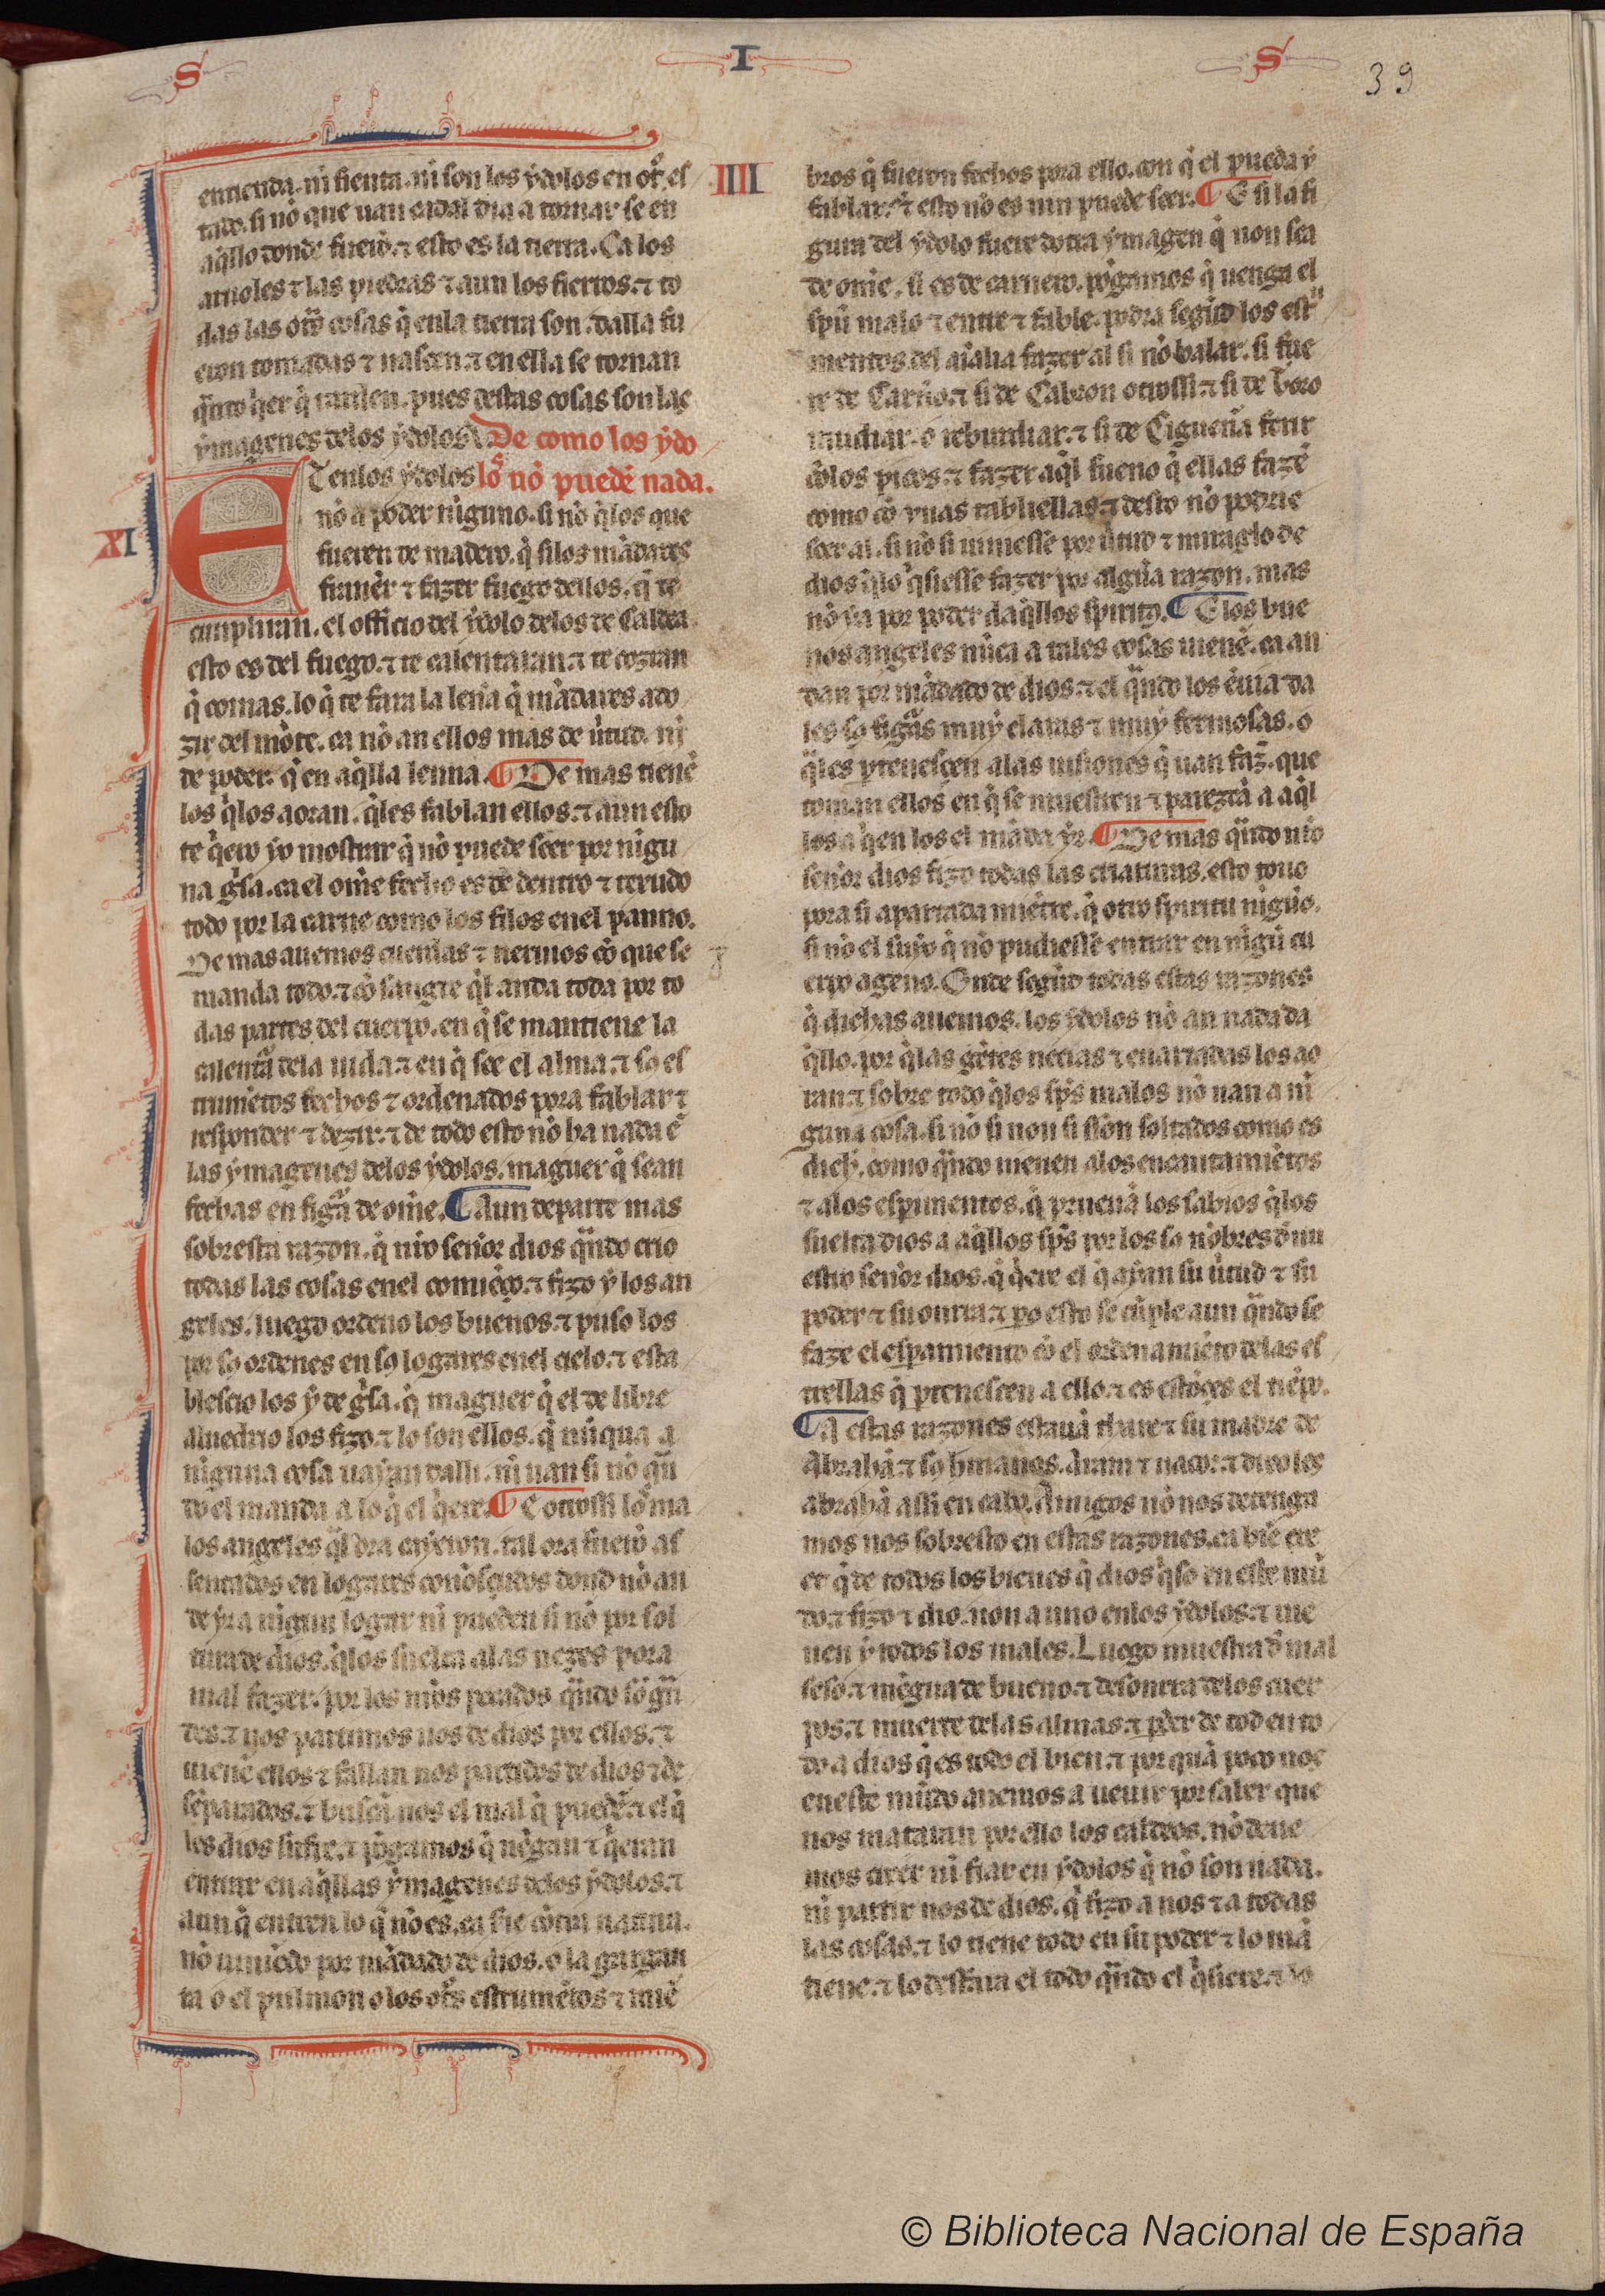 S I S
39
entienda. ni sienta. ni son los ydolos en ot̃ es
tado. si nõ que uan cadal dia a tornar se en
aq̃llo donde fuerõ. ⁊ esto es la tierra. Ca los
aruoles ⁊ las piedras ⁊ aun los fierros. ⁊ to
das las otͣs cosas q̃ enla tierra son. dalla fu
eron tomadas ⁊ nascen. ⁊ en ella se tornan
q̃nto q̃er q̃ tarden. pues destas cosas son las
ymagenes delos ydolos. De como los ydo
XI
E Tenlos ydolos los nõ puedẽ nada.
nõ a poder ninguno. si nõ q̃los que
fueren de madero. q̃ silos mãdares
fiunẽr ⁊ fazer fuego dellos. q̃ te
cumpliran. el officio del ydolo delos de Caldea
esto es del fuego. ⁊ te calentaran. ⁊ te cozran
q̃ comas. lo q̃ te fara la leña q̃ mãdares adu
zir del mõte. ca nõ an ellos mas de ũtud. ni
de poder. q̃ en aq̃lla lenna. ¶ De mas tienẽ
los q̃los aoran. q̃les fablan ellos. ⁊ aun esto
te q̃ero yo mostrar q̃ nõ puede seer por nigu
na g̃sa. ca el om̃e fecho es de dentro ⁊ texudo
todo por la carne como los filos enel panno.
De mas auemos cuerdas ⁊ neruios cõ que se
manda todo. ⁊ cõ sangre q̃l anda toda por to
das partes del cuerpo. en q̃ se mantiene la
calentͣ dela uida. ⁊ en q̃ see el alma. ⁊ so es
trumẽtos fechos ⁊ ordenados pora fablar ⁊
responder ⁊ dezir. ⁊ de todo esto nõ ha nada ẽ
las ymagenes delos ydolos. maguer q̃ sean
fechas en figͣ de om̃e. ¶ Aun departe mas
sobresta razon. q̃ nr̃o señor dios q̃ndo crio
todas las cosas enel comiẽço. ⁊ fizo y los an
geles. luego ordeno los buenos. ⁊ puso los
por so ordenes en so logares enel cielo. ⁊ esta
blescio los y de g̃sa. q̃ maguer q̃ el de libre
aluedrio los fizo. ⁊ lo son ellos. q̃ nũqua a
niguna cosa uayan dalli. ni uan si nõ q̃n
do el manda a lo q̃ el q̃ere. ¶ E otrossi los ma
los angeles q̃l ora cayeron. tal ora fuerõ as
sentados en logares conosçudos dond nõ an
de yr a nigun logar ni pueden si nõ por sol
tura de dios. q̃los suelta alas uezes pora
mal fazer. por los nr̃os pecados q̃ndo sõ gͣn
des. ⁊ nos partimos nos de dios por ellos. ⁊
uienẽ ellos ⁊ fallan nos partidos de dios ⁊ de
separados. ⁊ buscã nos el mal q̃ puedẽ. ⁊ el q̃
les dios sufre. ⁊ pogamos q̃ uẽgan ⁊ q̃eran
entrar en aq̃llas ymagenes delos ydolos. ⁊
aun q̃ entren lo q̃ nõ es. ca fie cõtra natura.
nõ uiniẽdo por mãdado de dios. o la gargan
ta o el pulmon o los otͦs estrumẽtos ⁊ miẽ
IIII
bros q̃ fueron fechos pora ello. con q̃ el pueda y
fablar. ⁊ esto nõ es nin puede seer. ¶ E si la fi
gura del ydolo fuere dotra ymagen q̃ non sea
de om̃e. si es de carnero. pogamos q̃ uenga el
spũ malo ⁊ entre ⁊ fable. podra segũd los estͬu
mentos del aĩalia fazer al si nõ balar. si fue
re de Carn̄o. ⁊ si de Cabron otrossi. ⁊ si de Toro
mudiar. o rebundiar. ⁊ si de Ciguen̄a ferir
cõlos picos. ⁊ fazer aq̃l sueno q̃ ellas fazẽ
como cõ vnas tabliellas. ⁊ desto nõ podrie
seer al. si nõ si uiniessẽ por ũtud ⁊ miraglo de
dios q̃lo q̃siesse fazer por algũa razon. mas
nõ ya por poder daq̃llos spiritꝯ. ¶ E los bue
nos angeles nũca a tales cosas uienẽ. ca an
dan por mãdado de dios. ⁊ el q̃ndo los ẽuia da
les so figͣs muy claras ⁊ muy fermosas. o
q̃les ꝑtenescen alas uisiones q̃ uan faz̃. que
toman ellos en q̃ se muestren ⁊ parezcã a aq̃l
los a q̃en los el mãda yr. ¶ De mas q̃ndo nr̃o
señor dios fizo todas las criaturas. esto touo
pora si apartada miẽtre. q̃ otro spiritu nigũo.
si nõ el suyo q̃ nõ pudiesse entrar en nigũ cu
erpo ageno. Onde segũd todas estas razones
q̃ dichas auemos. los ydolos nõ an nada da
q̃llo. por q̃ las gẽtes necias ⁊ enartadas los ao
ran. ⁊ sobre todo q̃los sp̃s malos nõ uan a ni
guna cosa. si nõ si non si sson soltados como es
dicħ. como q̃ndo uienen alos encantamiẽtos
⁊ alos esperimentos. q̃ prueuã los sabios q̃los
suelta dios a aq̃llos sp̃s por los so nõbres d̃ nu
estro señor dios. q̃ q̃ere el q̃ ayan su ũtud ⁊ su
poder ⁊ su onrra. ⁊ ꝑo esto se cũple aun q̃ndo se
faze el espamiento cõ el ordenamiẽto delas es
trellas q̃ ꝑtenescen a ello. ⁊ es estõces el tiẽpo.
¶ A estas razones estauã thare ⁊ su madre de
Abrahã. ⁊ so hm̃anos. Aram ⁊ nacor. ⁊ dixo les
abrahã assi en cabo. Amigos nõ nos detenga
mos nos sobresto en estas razones. ca biẽ cre
er q̃ de todos los bienes q̃ dios q̃so en este mũ
do. ⁊ fizo ⁊ dio. non a uno enlos ydolos. ⁊ uie
nen y todos los males. Luego muestra d̃ mal
seso. ⁊ mẽgua de bueno. ⁊ desonrra delos cuer
pos. ⁊ muerte delas almas. ⁊ ꝑder de tod en to
do a dios q̃ es todo el bien. ⁊ por quã poco nos
eneste mũdo auemos a ueuir por saber que
nos mataran por ello los caldeos. nõ deue
mos creer ni fiar en ydolos q̃ nõ son nada.
ni partir nos de dios. q̃ fizo a nos ⁊ a todas
las cosas. ⁊ lo tiene todo en su poder ⁊ lo mã
tiene. ⁊ lo desfara el todo q̃ndo el q̃siere. ⁊ lo
© Biblioteca Nacional de España